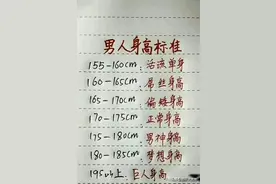 男人身高标准
155-160cm:活该单身
160-165cm:吊丝身高
165-170cm:偏矮身高
170-175cm:正常身高
175-180cm:男神身高
180-185cm:梦想身高
195以上:巨人身高